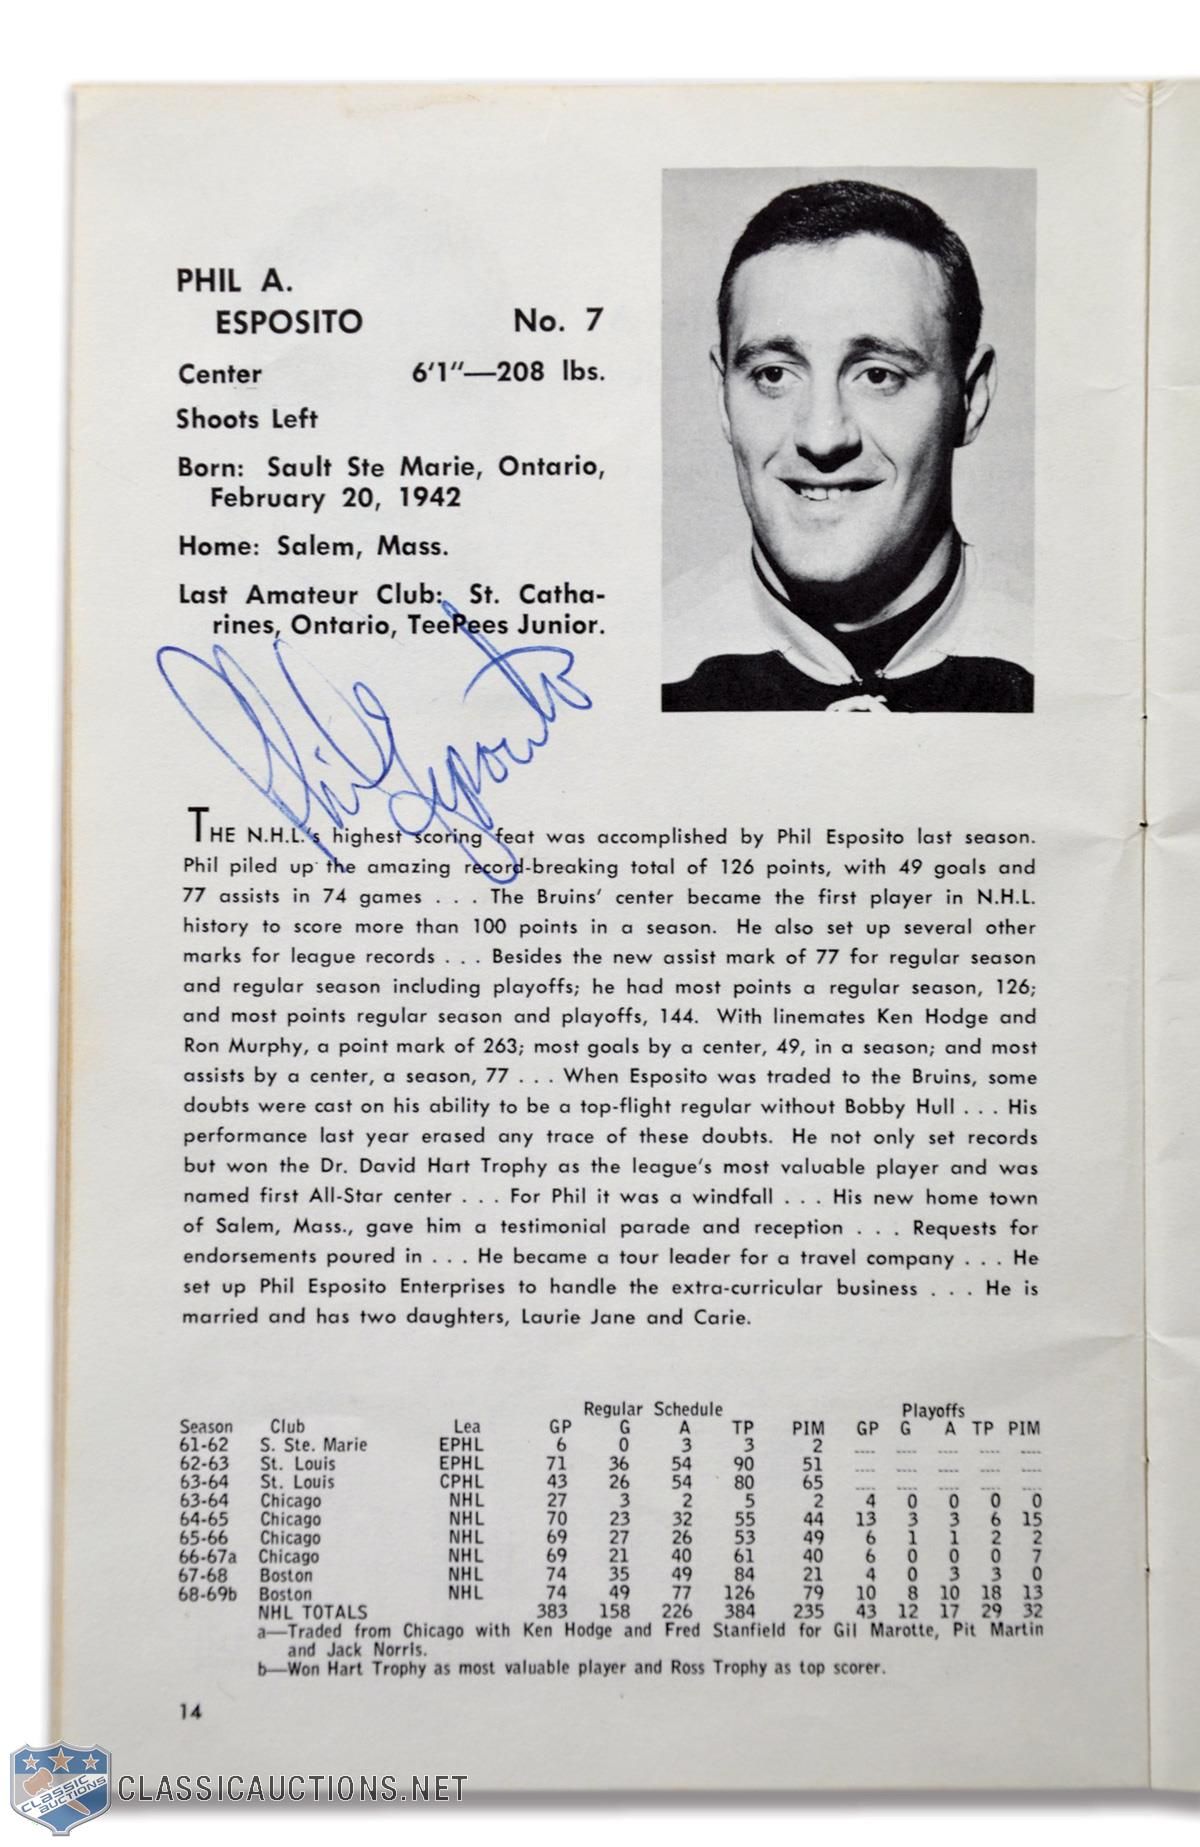 PHIL A.
ESPOSITO No. 7
Center 6'1"—208 lbs.
Shoots Left
Born: Sault Ste Marie, Ontario,
February 20, 1942
Home: Salem, Mass.
Last Amateur Club: St. Catha-
rines, Ontario, TeePees Junior.
Phil Esposito
THE N.H.L.'s highest scoring feat was accomplished by Phil Esposito last season.
Phil piled up the amazing record-breaking total of 126 points, with 49 goals and
77 assists in 74 games . . . The Bruins' center became the first player in N.H.L.
history to score more than 100 points in a season. He also set up several other
marks for league records . . . Besides the new assist mark of 77 for regular season
and regular season including playoffs; he had most points a regular season, 126;
and most points regular season and playoffs, 144. With linemates Ken Hodge and
Ron Murphy, a point mark of 263; most goals by a center, 49, in a season; and most
assists by a center, a season, 77 . . . When Esposito was traded to the Bruins, some
doubts were cast on his ability to be a top-flight regular without Bobby Hull . . . His
performance last year erased any trace of these doubts. He not only set records
but won the Dr. David Hart Trophy as the league's most valuable player and was
named first All-Star center . . . For Phil it was a windfall . . . His new home town
of Salem, Mass., gave him a testimonial parade and reception . . . Requests for
endorsements poured in . . . He became a tour leader for a travel company . . . He
set up Phil Esposito Enterprises to handle the extra-curricular business . . . He is
married and has two daughters, Laurie Jane and Carie.
Regular Schedule Playoffs
Season Club Lea GP G A TP PIM GP G A TP PIM
61-62 S. Ste. Marie EPHL 6 0 3 3 2 .... .... .... .... ....
62-63 St. Louis EPHL 71 36 54 90 51 .... .... .... .... ....
63-64 St. Louis CPHL 43 26 54 80 65 .... .... .... .... ....
63-64 Chicago NHL 27 3 2 5 2 4 0 0 0 0
64-65 Chicago NHL 70 23 32 55 44 13 3 3 6 15
65-66 Chicago NHL 69 27 26 53 49 6 1 1 2 2
66-67a Chicago NHL 69 21 40 61 40 6 0 0 0 7
67-68 Boston NHL 74 35 49 84 21 4 0 3 3 0
68-69b Boston NHL 74 49 77 126 79 10 8 10 18 13
NHL TOTALS 383 158 226 384 235 43 12 17 29 32
a—Traded from Chicago with Ken Hodge and Fred Stanfield for Gil Marotte, Pit Martin
and Jack Norris.
b—Won Hart Trophy as most valuable player and Ross Trophy as top scorer.
14
CLASSIC AUCTIONS
CLASSICAUCTIONS.NET